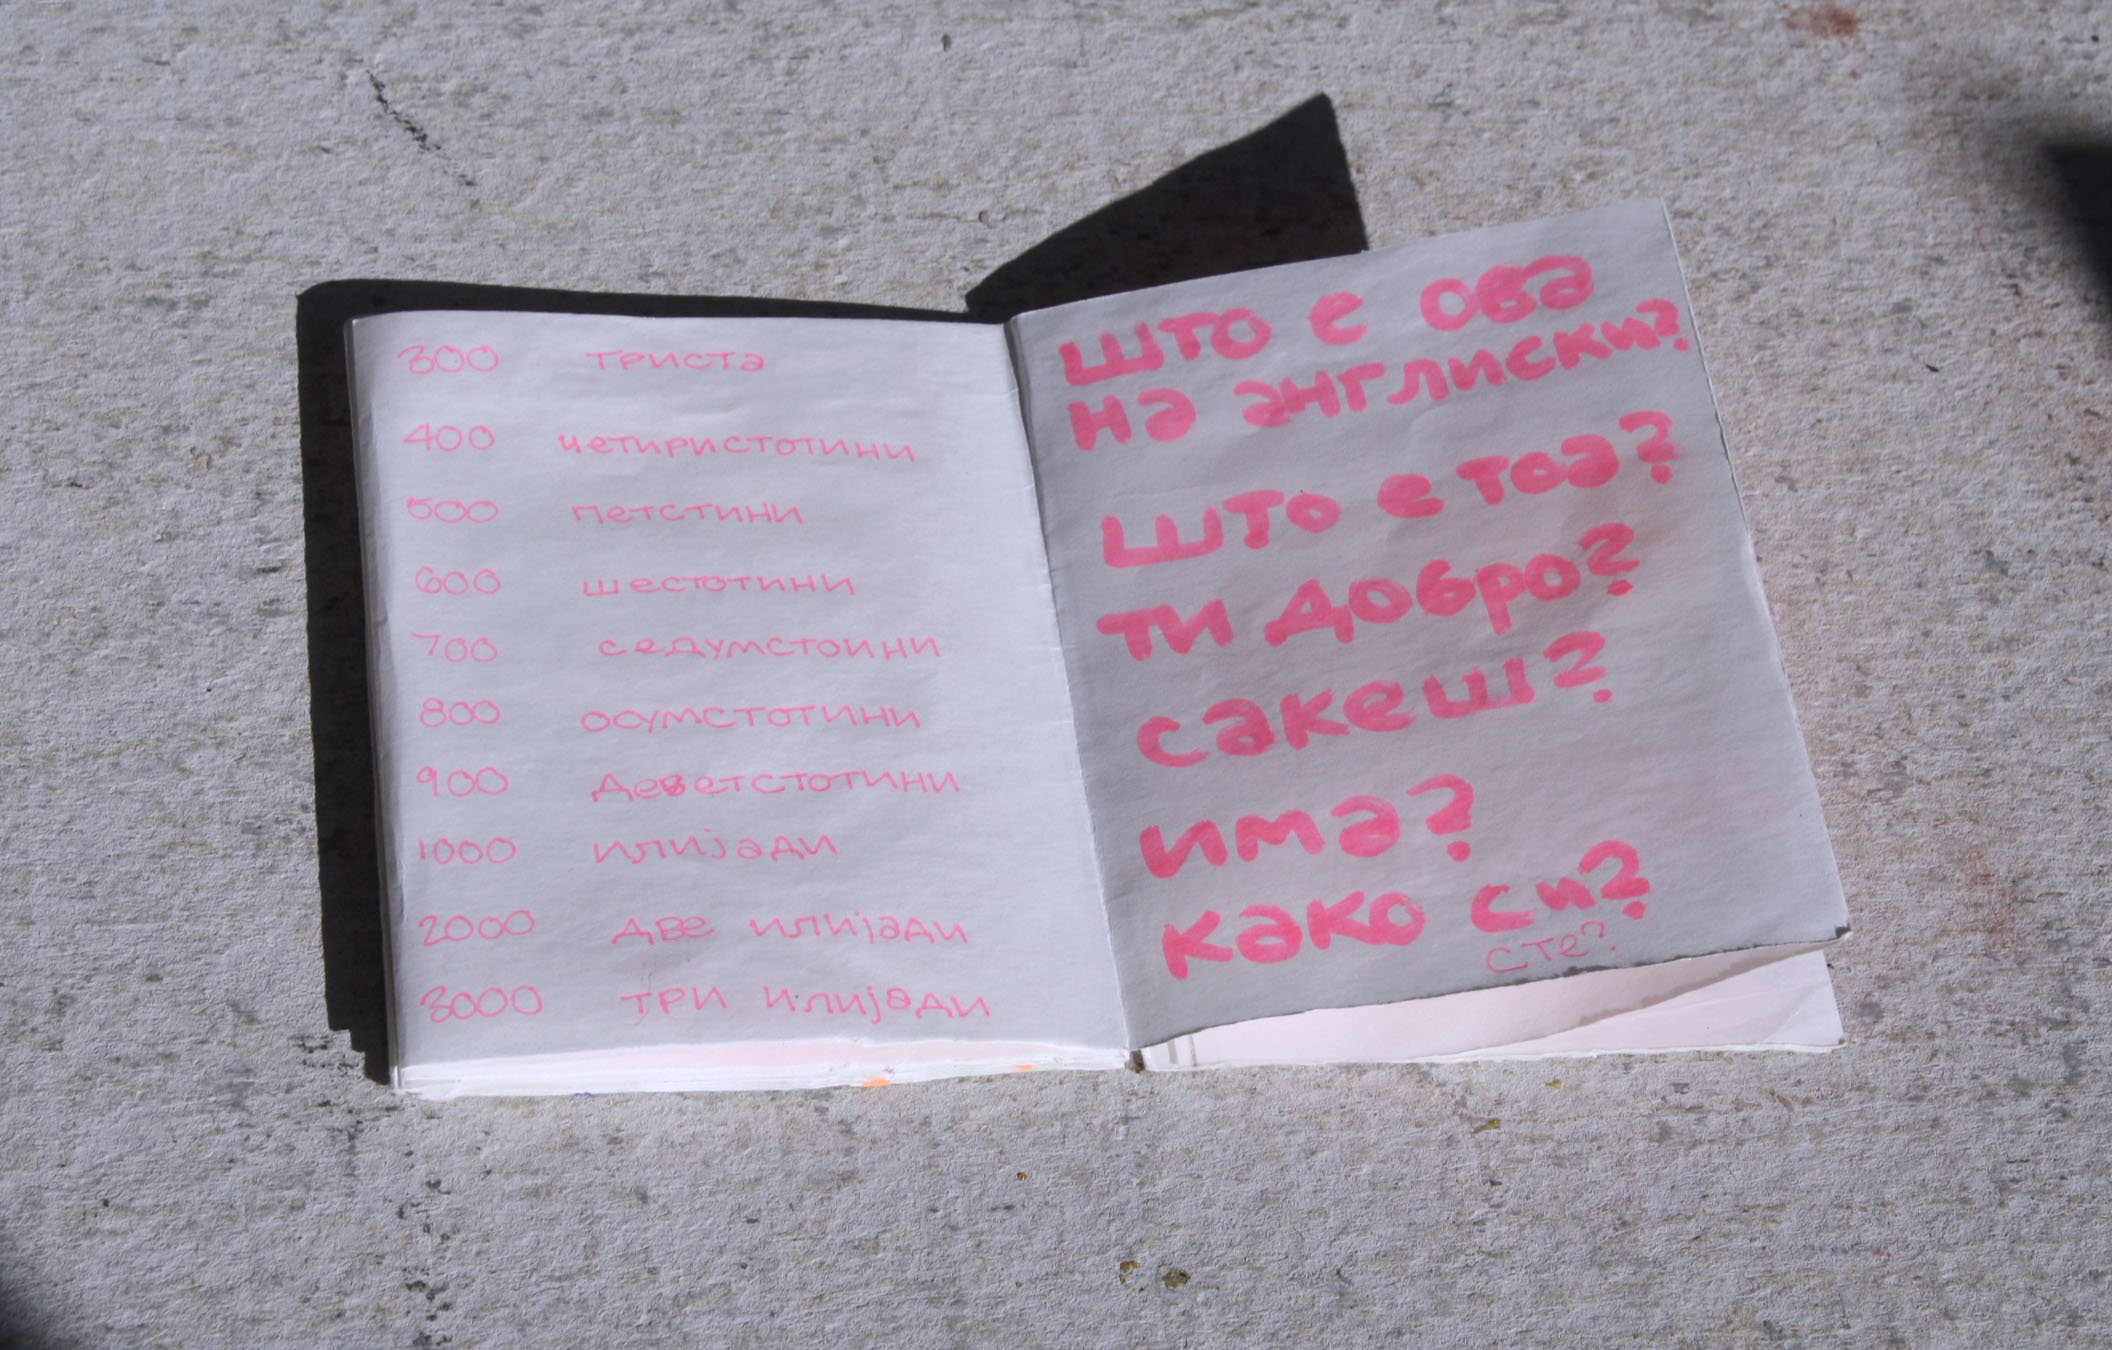 300 триста
400 четиристотини
500 петстини
600 шестотини
700 седумстоини
800 осумстотини
900 деветстотини
1000 илијади
2000 две илијади
3000 три илијади
што е ова
на англиски?
што е тоа?
ти добро?
сакеш?
има?
како си?
сте?